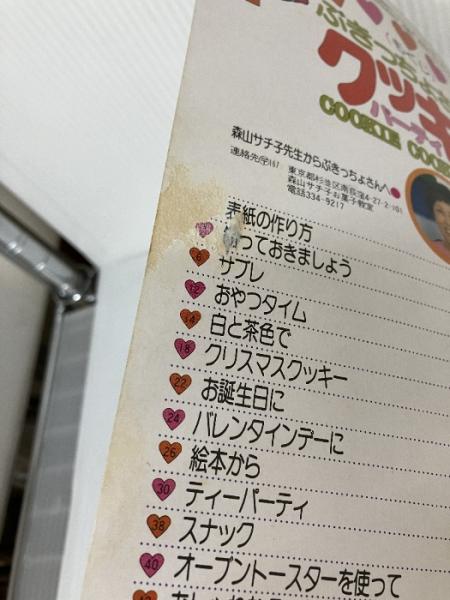 ぶきっちょさ
クッキ
パーティ
COOKIE COOK
森山サチ子先生からぶきっちょさんへ●
連絡先(〒167 東京都杉並区南荻窪4-27-2-101
森山サチ子お菓子教室
電話334-9217
表紙の作り方
っておきましょう
6 サブレ
12 おやつタイム
14 白と茶色で
18 クリスマスクッキー
22 お誕生日に
24 バレンタインデーに
26 絵本から
30 ティーパーティ
38 スナック
40 オーブントースターを使って